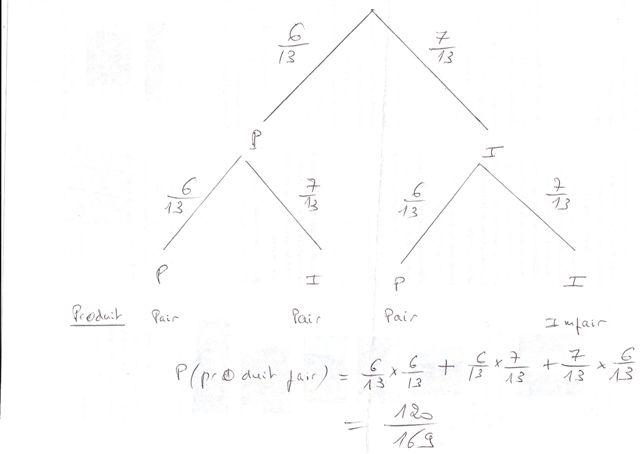 6/13 7/13
P I
6/13 7/13 6/13 7/13
P I P I
Produit Pair Pair Pair Impair
P(produit pair) = 6/13 × 6/13 + 6/13 × 7/13 + 7/13 × 6/13
= 120/169